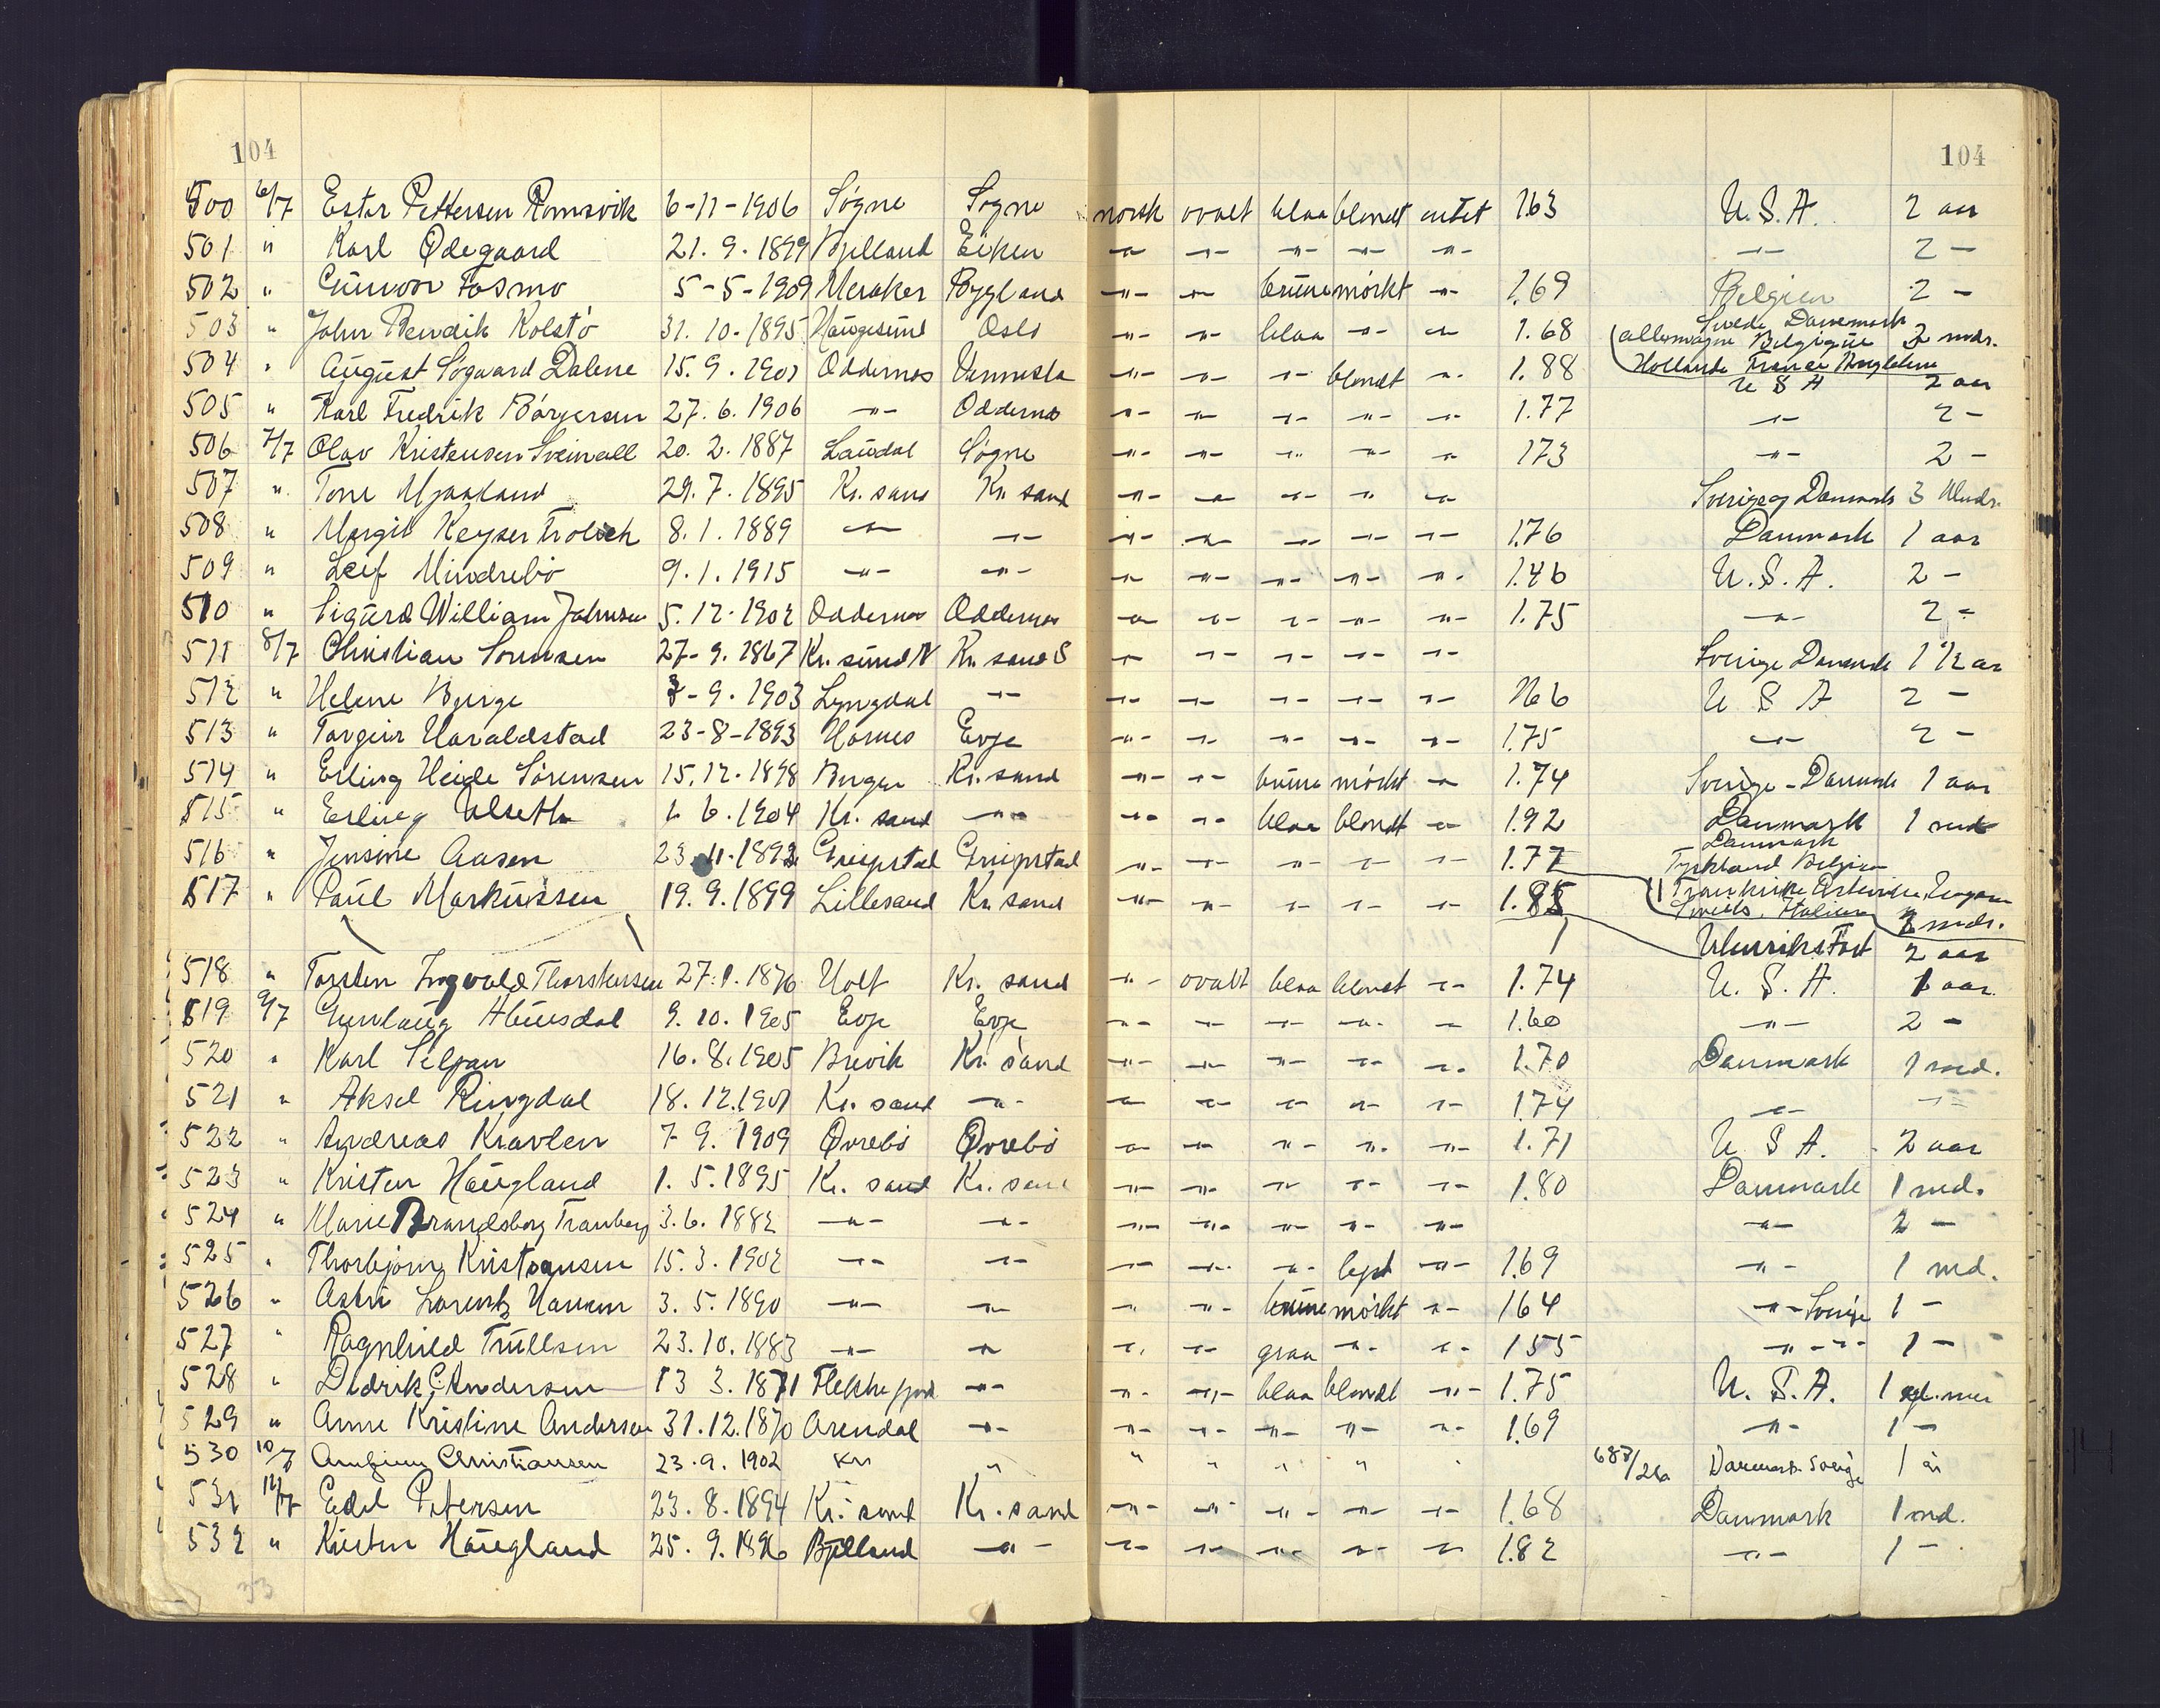 104 104
500 6/7 Ester Pettersen Romsvik 6-11-1906 Søgne Søgne norsk ovalt blaa blondt intet 163 U.S.A. 2 aar
501 " Karl Ødegaard 21.9.1899 Bjelland Eiken -"- -"- -"- -"- -"- -"- 2 -
502 " Gunvor Fosmo 5-5-1909 Meraker Bygland -"- -"- brune mörkt -"- 1.69 Belgien 2 -
503 " John Bendik Kolstö 31.10.1895 Haugesund Oslo -"- -"- blaa -"- -"- 1.68 Suede Danemark allemagne Belgique 2 mdr.
504 " August Søgaard Dalene 15.9.1901 Oddernes Vennesla -"- -"- -"- blondt -"- 1.88 Hollande France U S A 2 aar
505 " Karl Fredrik Börgersen 27.6.1906 -"- Oddernes -"- -"- -"- -"- -"- 1.77 -"- 2 -
506 7/7 Olav Kristensen Sveinall 20.2.1887 Laudal Søgne -"- -"- -"- -"- -"- 173 -"- 2 -
507 " Tone Mjaaland 29.7.1895 Kr. sand Kr. sand -"- -"- -"- -"- -"- Sverige og Danmark 3 Mndr.
508 " Margit Keyser Frolich 8.1.1889 -"- -"- -"- -"- -"- -"- -"- 1.76 Danmark 1 aar
509 " Leif Mindrebö 9.1.1915 -"- -"- -"- -"- -"- -"- -"- 1.46 U.S.A. 2 -
510 " Sigurd William Johnsen 5.12.1902 Oddernes Oddernes -"- -"- -"- -"- -"- 1.75 -"- 2 -
511 8/7 Christian Sørensen 27-9.1867 Kr. sund N Kr. sand S -"- -"- -"- -"- -"- Sverige Danmark 1 1/2 aar
512 " Helene Bjerge 3-9.1903 Lyngdal -"- -"- -"- -"- -"- -"- 166 U S A 2 -
513 " Torgeir Haraldstad 23-8-1893 Hornes Evje -"- -"- -"- -"- -"- 1.75 -"- 2 -
514 " Erling Heide Sörensen 15.12.1898 Bergen Kr. sand -"- -"- brune mörkt -"- 1.74 Sverige - Danmark 1 aar
515 " Erling Ulseth 1.6.1904 Kr. sand -"- -"- -"- blaa blondt -"- 1.92 Danmark 1 md
516 " Jensine Aasen 23.11.1893 Greipstad Greipstad -"- -"- -"- -"- -"- 1.77 Danmark Tyskland Belgien
517 " Paul Markussen 19.9.1899 Lillesand Kr. sand -"- -"- -"- -"- -"- 1.85 Frankrike Italien 2 mdr.
Utenriks Fart 2 aar
518 " Torsten Ingvald Thorstensen 27.1.1876 Holt Kr. sand -"- ovalt blaa blondt -"- 1.74 U.S.A. 1 aar.
519 9/7 Gunlaug Abusdal 9.10.1905 Evje Evje -"- -"- -"- -"- -"- 1.60 -"- 2 -
520 " Karl Seljan 16.8.1905 Brevik Kr. sand -"- -"- -"- -"- -"- 1.70 Danmark 1 md.
521 " Aksel Ringdal 18.12.1901 Kr. sand -"- -"- -"- -"- -"- -"- 174 -"- -"-
522 " Andreas Kravlen 7 9. 1909 Øvrebö Øvrebö -"- -"- -"- -"- -"- 1.71 U S A. 2 aar
523 " Kristen Haugland 1.5.1895 Kr. sand Kr. sand -"- -"- -"- -"- -"- 1.80 Danmark 1 md.
524 " Marie Brandsborg Tranberg 3.6.1882 -"- -"- -"- -"- -"- -"- -"- -"- 2 -
525 " Thorbjørn Kristiansen 15.3.1902 -"- -"- -"- -"- -"- lyst -"- 1.69 -"- 1 md.
526 " Astri Lorentz Hansen 3.5.1890 -"- -"- " -"- brune mörkt -"- 164 -"- Sverige 1 -
527 " Ragnhild Trullsen 23.10.1883 -"- -"- -"- -"- graa -"- -"- 155 -"- -"- 1 -
528 " Didrik C. Andersen 13 3. 1871 Flekkefjord -"- -"- -"- blaa blondt -"- 1.75 U.S.A. 1
529 " Anne Kristine Andersen 31.12.1870 Arendal -"- -"- -"- -"- -"- -"- 1.69 -"- 1 -
530 10/7 Christiansen 23.9.1902 Krs " " " " " 687/26 Danmark. Sverige 1 år
531 12/7 Edel Petersen 23.8.1894 Kr. sand Kr. sand -"- -"- -"- -"- -"- 1.68 Danmark 1 md.
532 " Kristen Haugland 25.9.1896 Bjelland -"- -"- -"- -"- -"- -"- 1.82 -"- 1 -
33